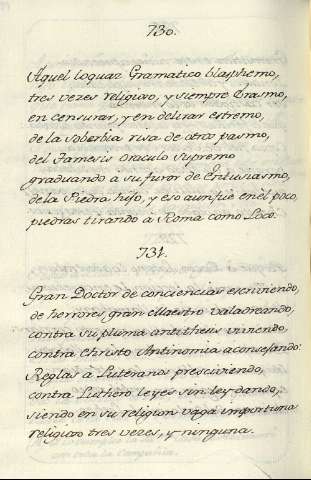 730.
Aquel loquaz Gramatico blasphemo,
tres vezes religioso, y siempre Erasmo,
en censurar, y en delirar estremo,
de la soberbia risa de otro pasmo,
del Tamesis oraculo supremo
graduando à su furor de Entusiasmo,
de la Piedra hijo, y eso aun fue en èl poco,
piedras tirando à Roma como Loco.
731.
Gran Doctor de conciencias escriviendo,
de herrores, gran Maestro valadreando,
contra su pluma antithesis viviendo,
contra Christo Antinomia aconsejando:
Reglas à Luteranos presciviendo,
contra Luthero leyes sin ley dando,
siendo en su religion vaga importuna
religioso tres vezes, y ninguna.